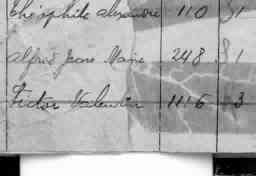 Théophile Alexandre 110 81
Alfred Jeane Marie 248 81
Victor Valentin 1116 83